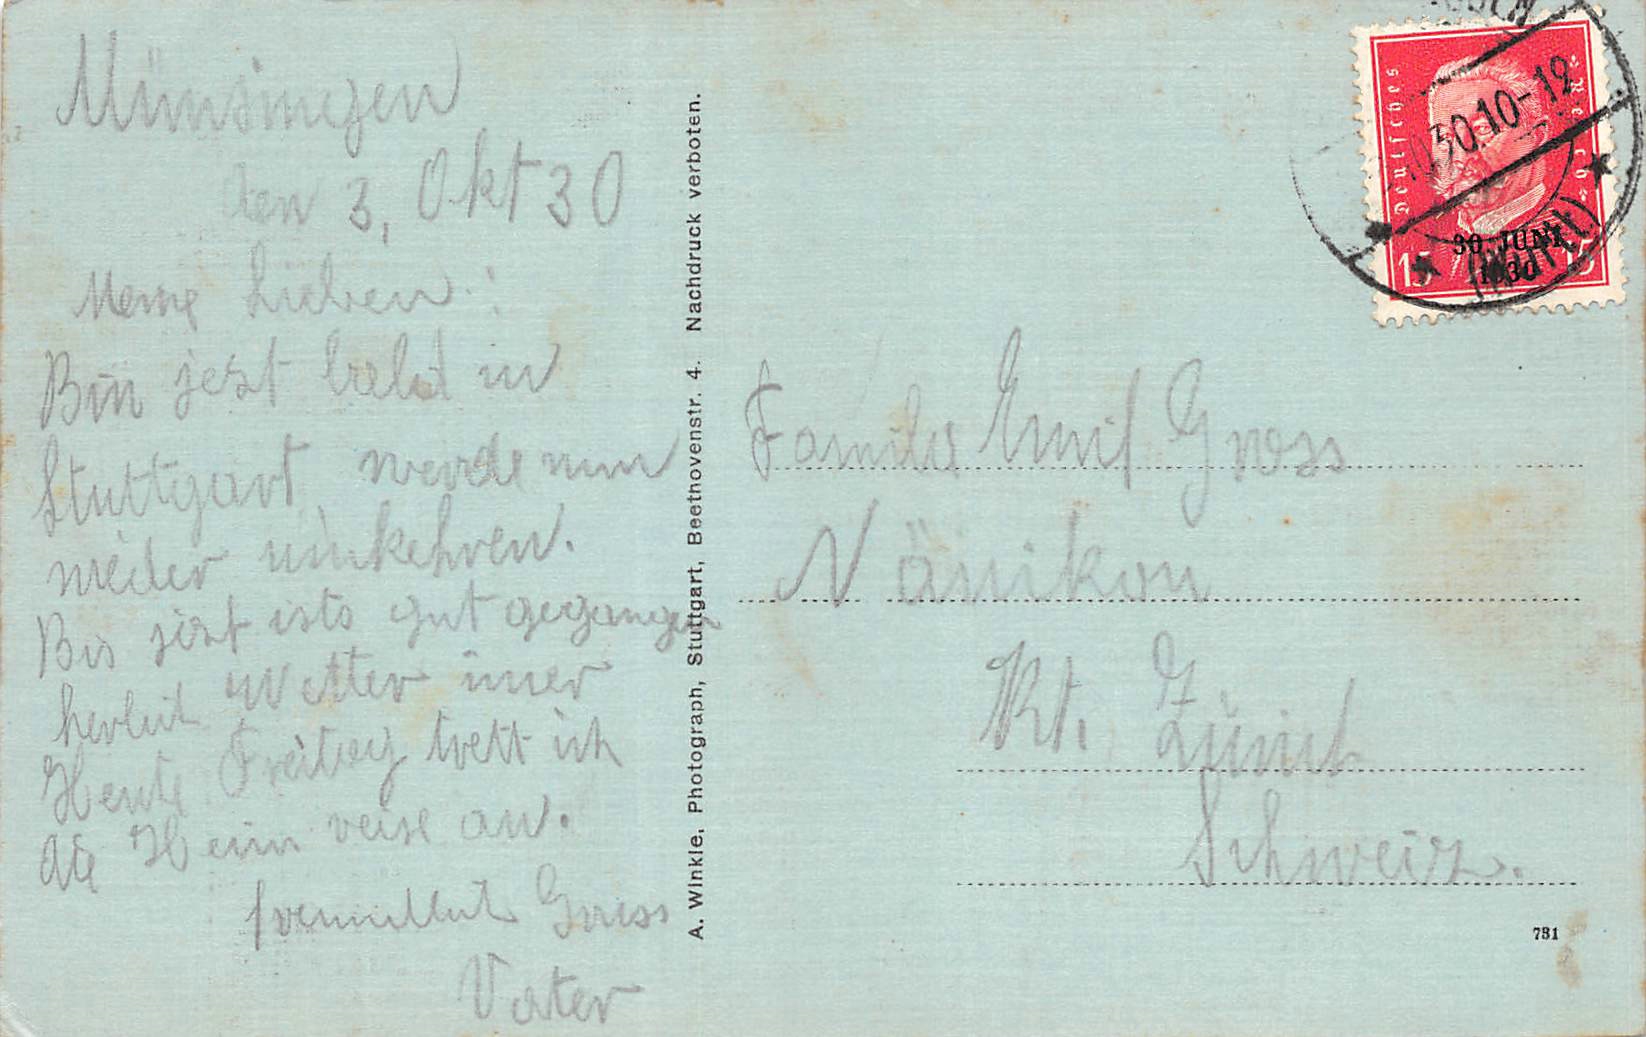 Münsingen
den 3, Okt 30
Meine Lieben !
Bin jezt bald in
Stuttgart, werde nun
wieder umkehren.
Bis jezt ists gut gegangen
herlich Wetter imer
Heute Freitag trett ich
die Heim reise an.
freundlich Gruss
Vater
A. Winkle, Photograph, Stuttgart, Beethovenstr. 4. Nachdruck verboten.
Deutsches Reich
30. JUNI
1930
15 15
10.30.10-12
(Württ)
Familie Emil Gross
Nänikon
Kt. Zürich
Schweiz.
731